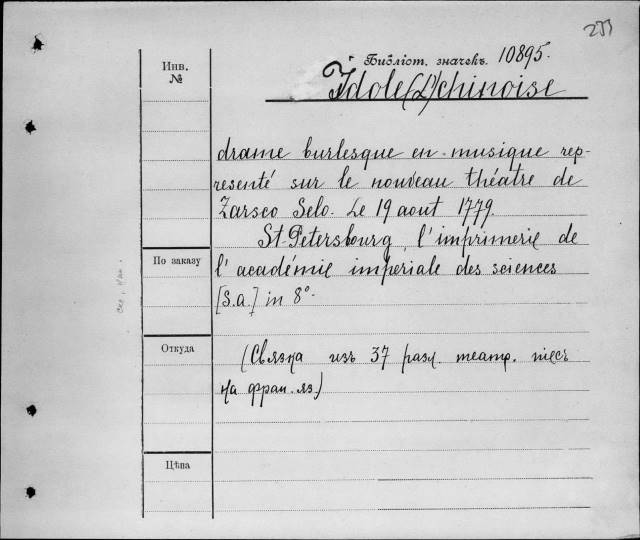 233
Библіот. значекъ. 10895.
Инв.
№
Idole (L') chinoise
drame burlesque en musique rep-
resenté sur le nouveau théatre de
Zarsco Selo. Le 19 aout 1779.
St-Petersbourg, l'imprimerie de
По заказу
l'académie imperiale des sciences
[S.a.] in 8°.
Откуда
(Связка изъ 37 разл. театр. піесъ
на фран. яз.)
Цѣна